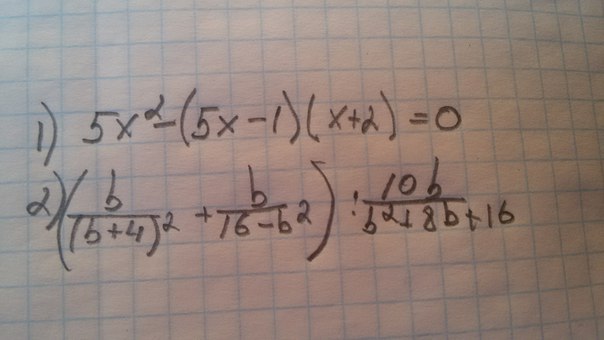 1) 5x²-(5x-1)(x+2)=0
2) (b/(b+4)² + b/16-b²) : 10b/b²+8b+16